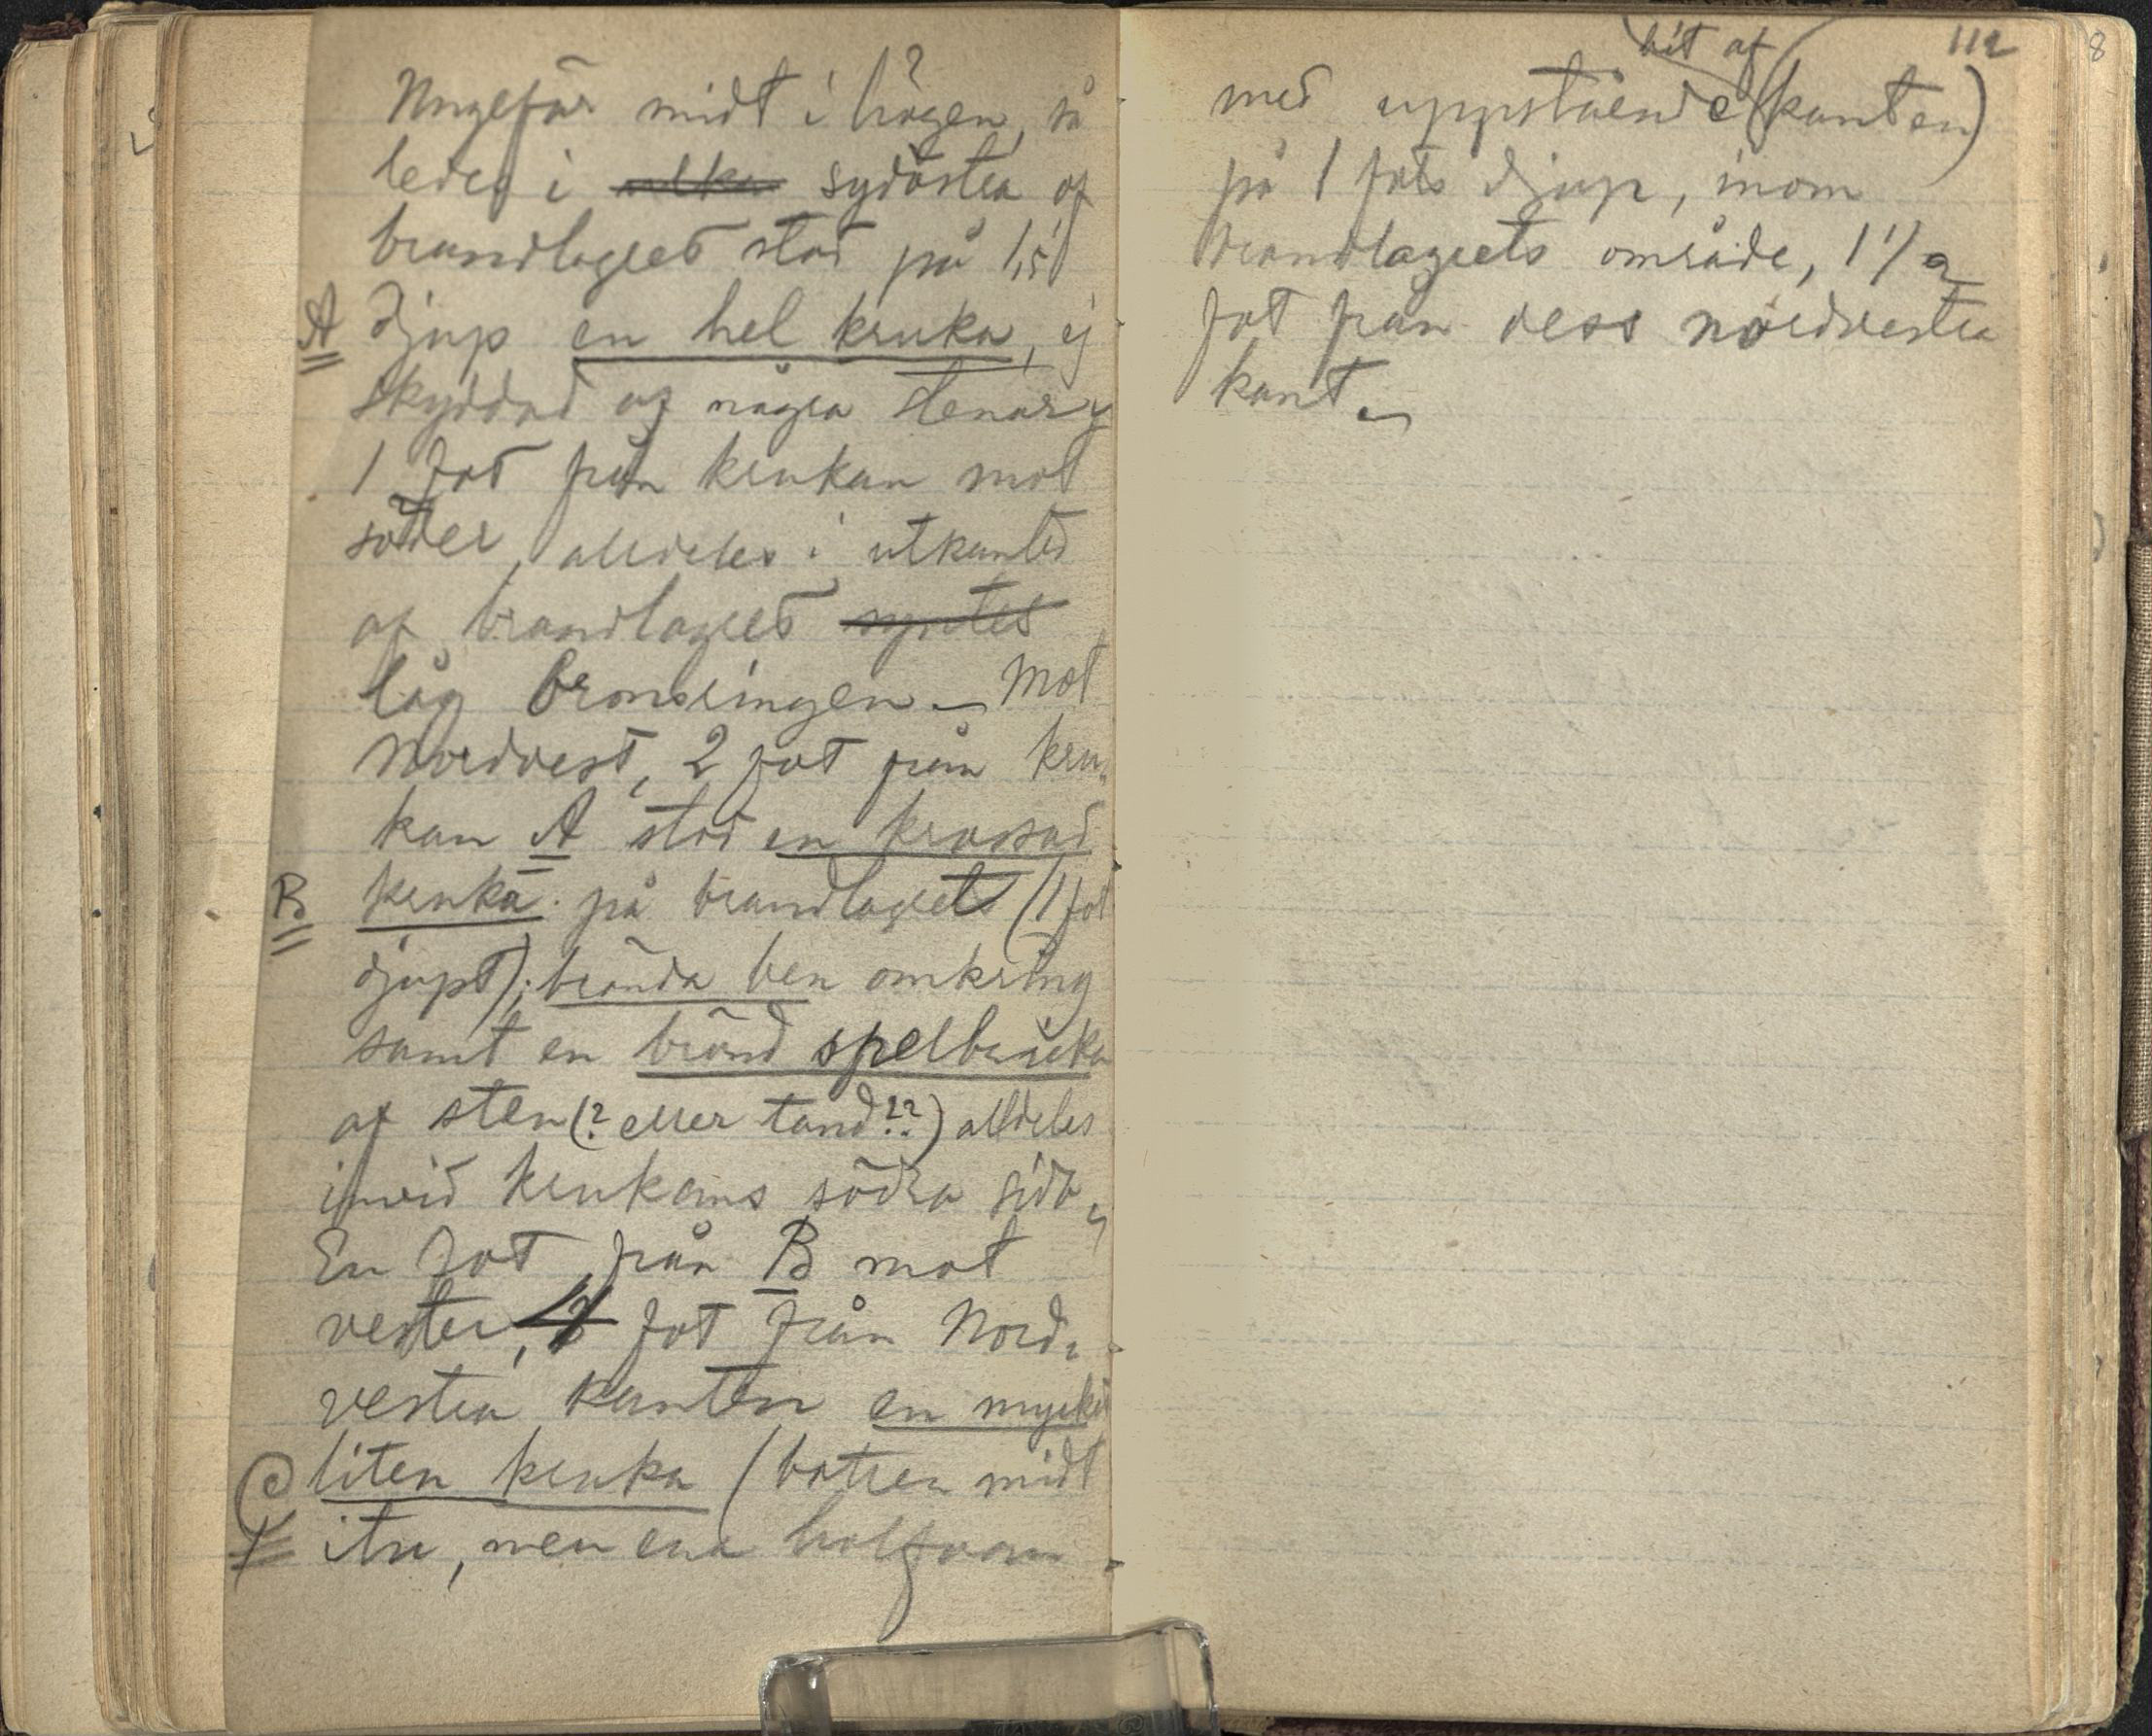 Ungefär midt i högen, så
ledes i sydöstra af
brandlagret stod på 1,5'
A djup en hel kruka, ej
skyddad af några stenar
1 fot från krukan mot
söder, alldeles i utkanten
af brandlagret syntes
låg bronsringen – Mot
Nordvest, 2 fot från kru-
kan A stod en krossad
B kruka på brandlagrets (1 fot
djupt); brända ben omkring
samt en bränd spelbricka
af sten (? eller tand??) alldeles
invid krukans södra sida
En fot från B mot
vester, fot från Nord-
vestra kanten en mycket
C liten kruka (botten midt
itu, men ena halfvan
112
8
bit af
med uppstående (kanten)
på 1 fots djup, inom
brandlagrets område, 1 1/2
fot från dess nordvestra
kant –